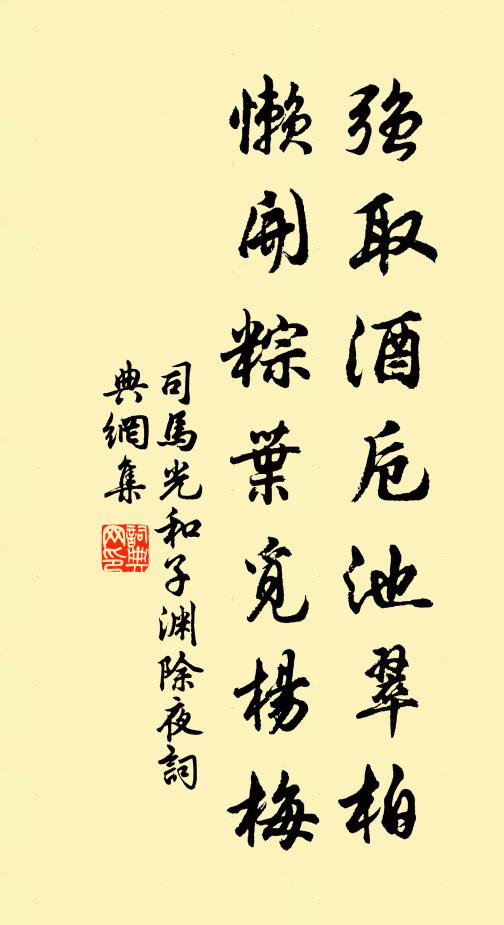 強取酒卮池翠柏
懶開粽葉覓楊梅
司馬光和子淵除夜詞
典網集
詞典網印